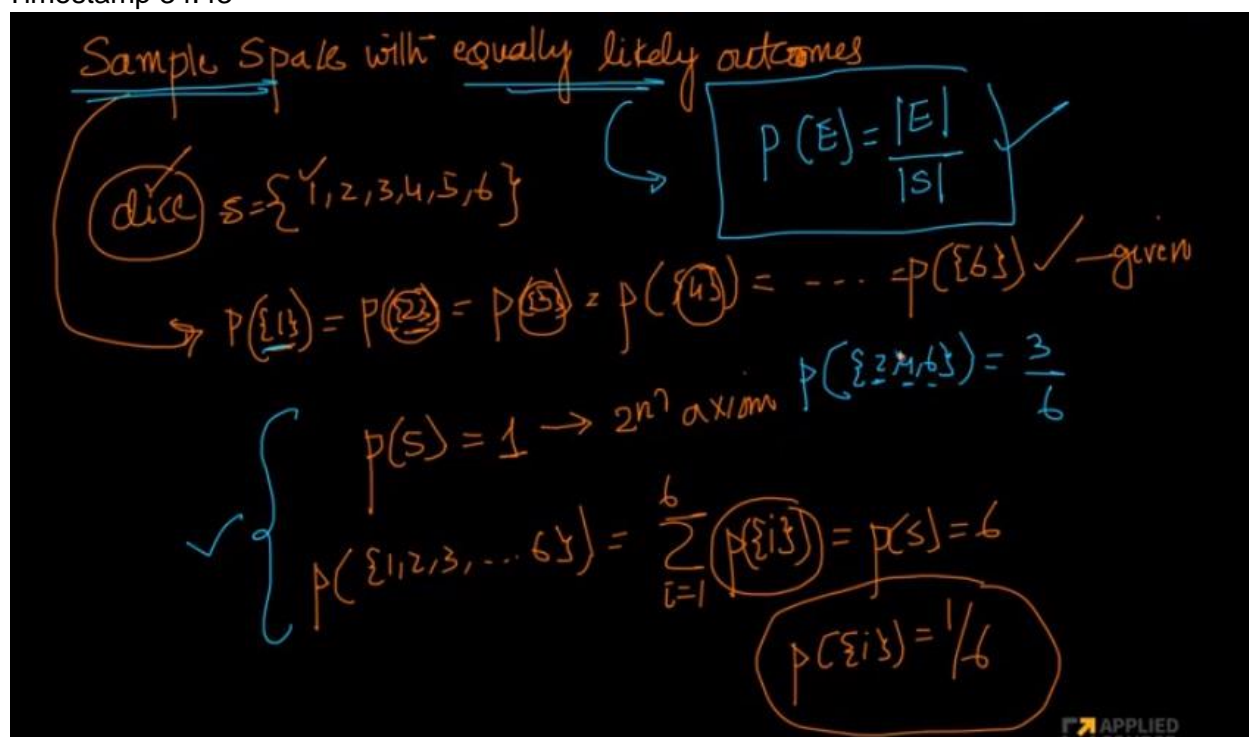 Sample Space with equally likely outcomes
P(E) = |E| / |S|
dice S = {1, 2, 3, 4, 5, 6}
P({1}) = P({2}) = P({5}) = P({4}) = ---- = P({6}) ✓ — given
P({2,4,6}) = 3/6
P(S) = 1 → 2nd axiom
P({1,2,3,...6}) = ∑_{i=1}^{6} P({i}) = P(S) = 6
P({i}) = 1/6
APPLIED